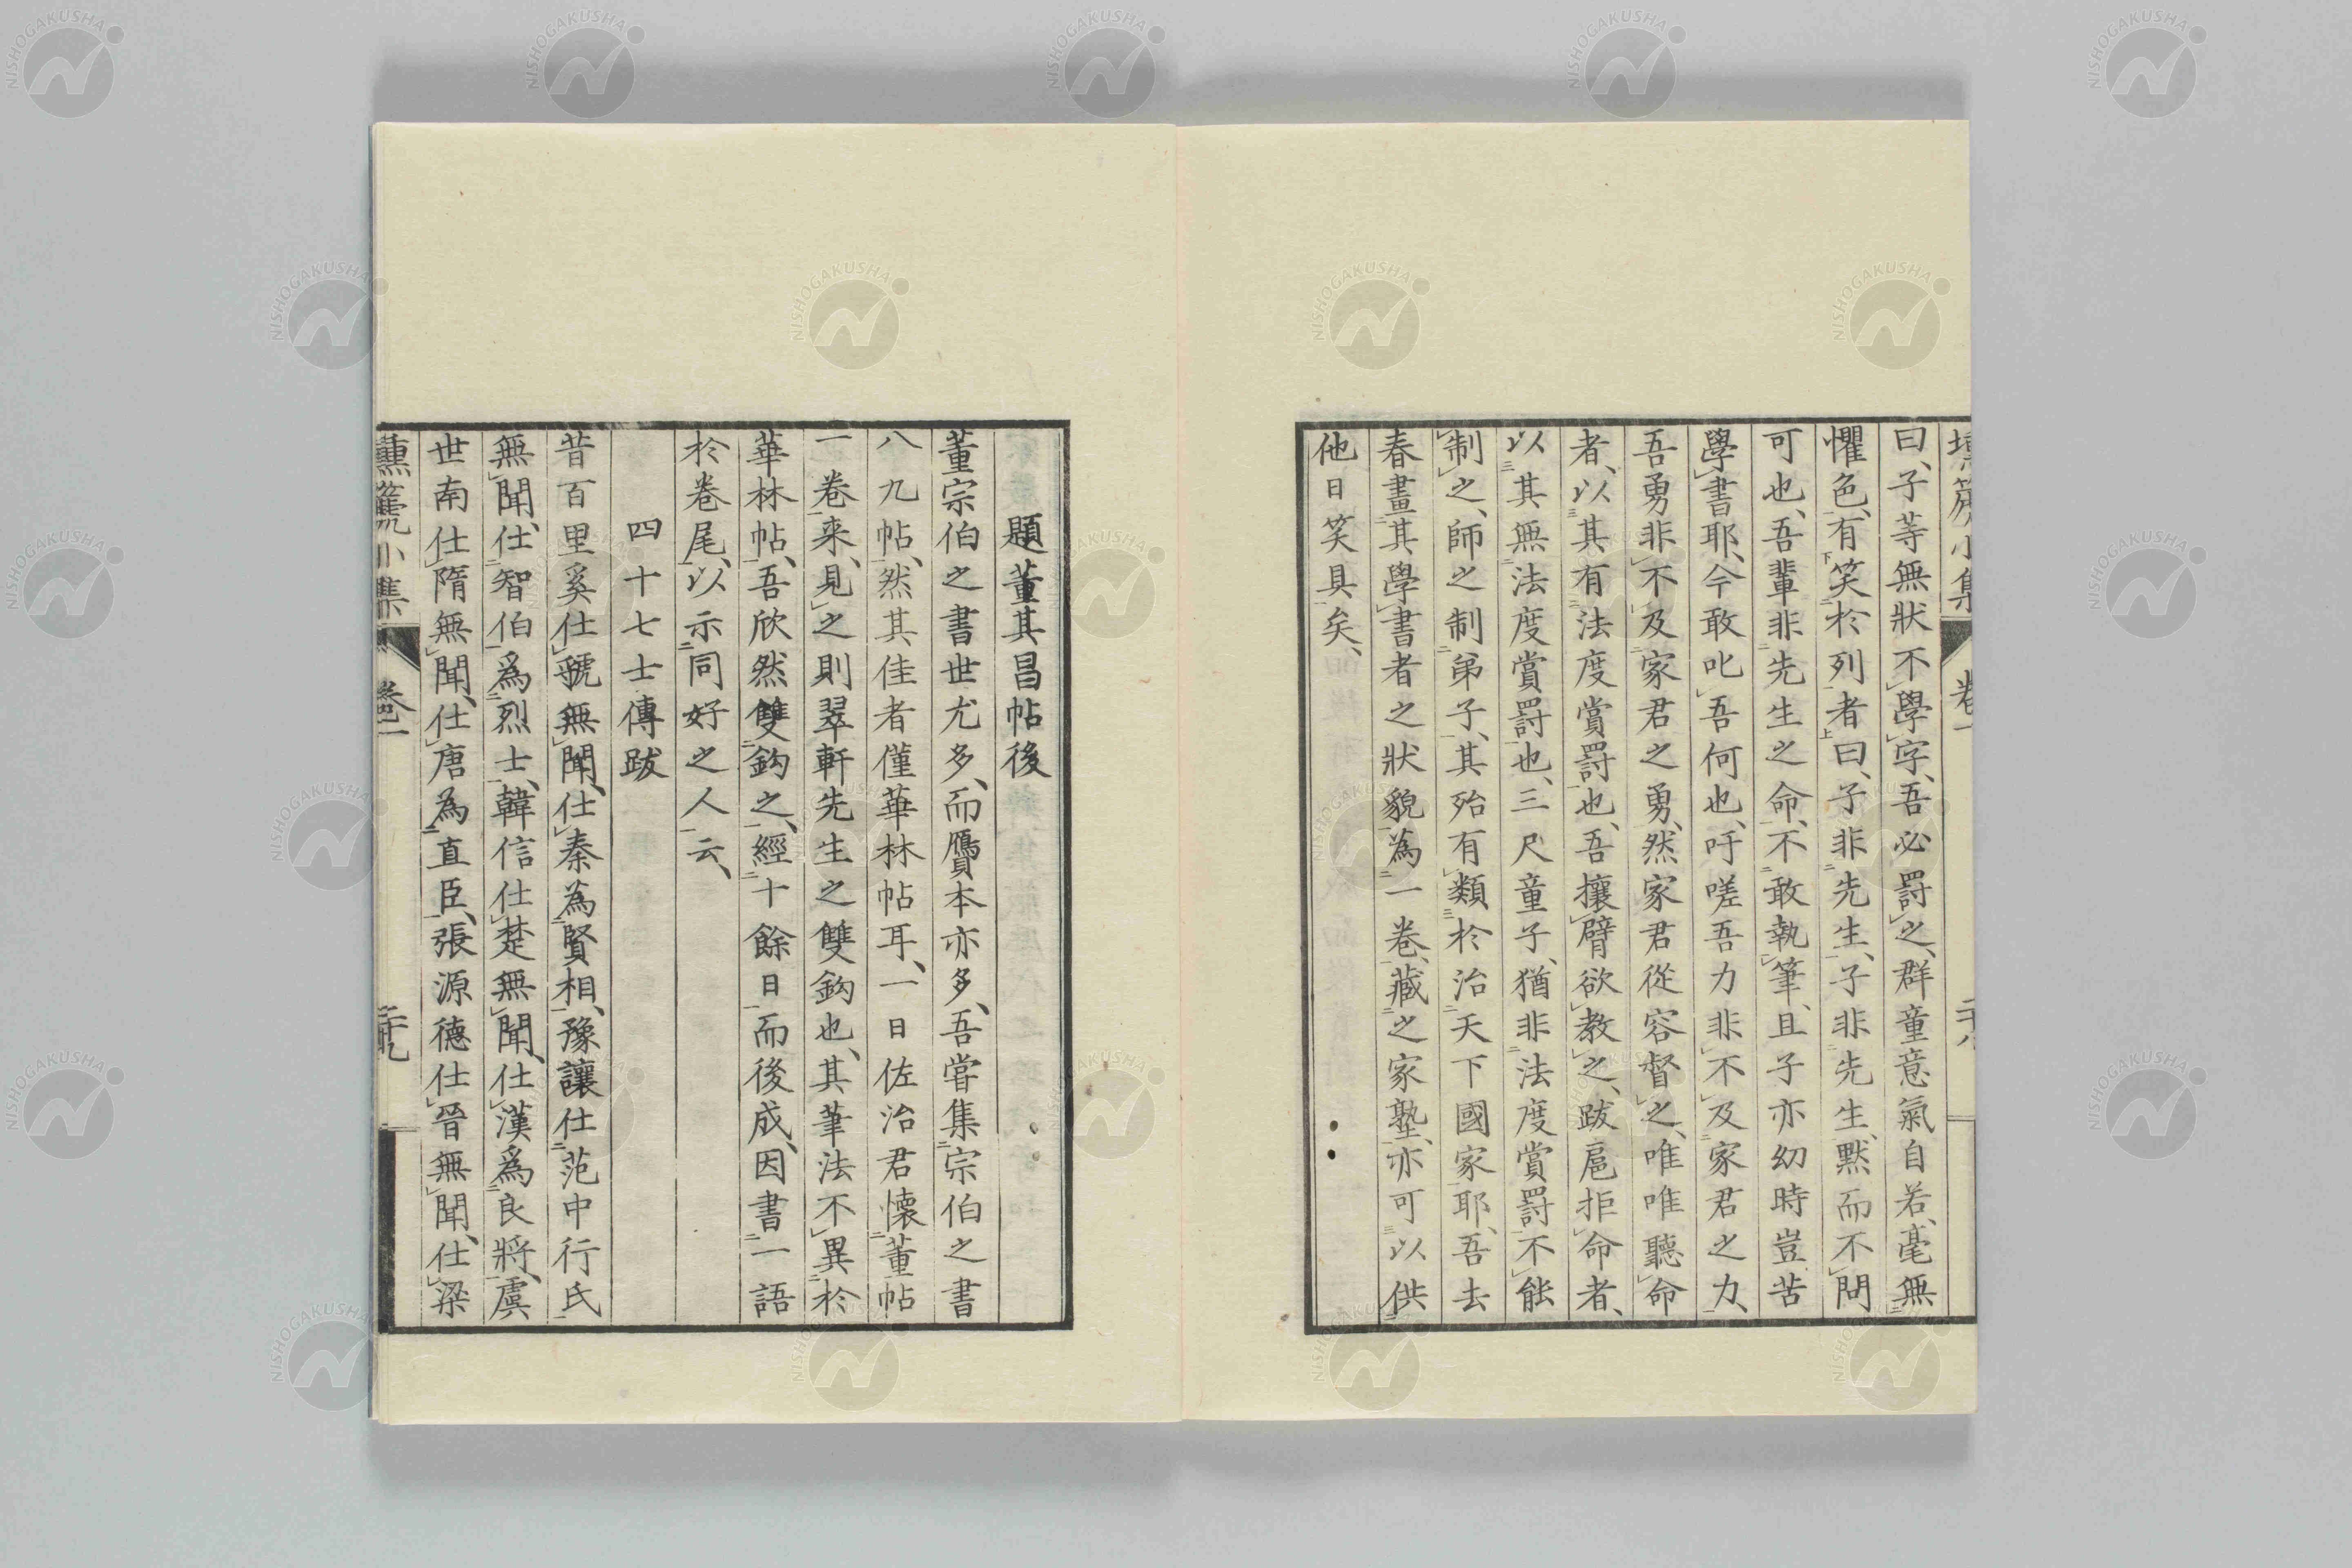 曰、子等無狀不學字、吾必罸之、群童意氣自若、毫無
懼色、有笑於列者曰、子非先生、子非先生、默而不問
可也、吾輩非先生之命、不敢執筆、且子亦幼時豈苦
學書耶、今敢叱吾何也、吁嗟吾力非不及家君之力、
吾勇非不及家君之勇、然家君從容督之、唯唯聽命
者、以其有法度賞罸也、吾攘臂欲教之、跋扈拒命者、
以其無法度賞罸也、三尺童子、猶非法度賞罸不能
制之、師之制弟子、其殆有類於治天下國家耶、吾去
春畫其學書者之狀貌為一卷、藏之家塾、亦可以供
他日笑具矣、
題董其昌帖後
董宗伯之書世尤多、而贋本亦多、吾嘗集宗伯之書
八九帖、然其佳者僅華林帖耳、一日佐治君懷董帖
一卷来、見之則翠軒先生之雙鈎也、其筆法不異於
華林帖、吾欣然雙鈎之、經十餘日而後成、因書一語
於卷尾、以示同好之人云、
四十七士傳跋
昔百里奚仕虢無聞、仕秦為賢相、豫讓仕范中行氏
無聞、仕智伯為烈士、韓信仕楚無聞、仕漢爲良將、虞
世南仕隋無聞、仕唐為直臣、張源德仕晉無聞、仕梁
NISHOGAKUSHA